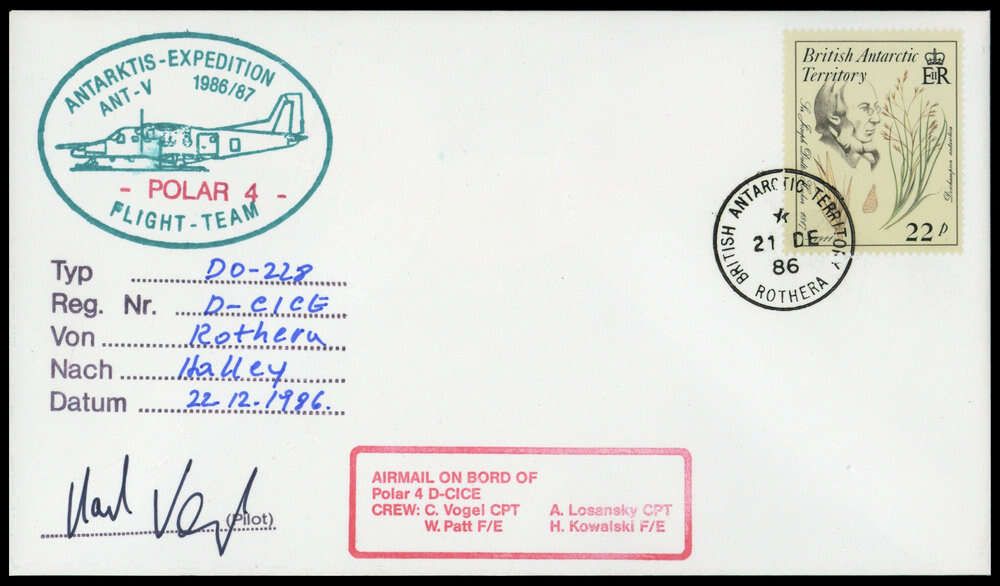 ANTARKTIS-EXPEDITION
ANT-V 1986/87
- POLAR 4 -
FLIGHT-TEAM
Typ DO-228
Reg. Nr. D-CICE
Von Rothera
Nach Halley
Datum 22.12.1986.
(Pilot)
British Antarctic
Territory
EIIR
Sir Joseph Dalton Hooker
Deschampsia antarctica
22p
BRITISH ANTARCTIC TERRITORY
21 DE
86
ROTHERA
AIRMAIL ON BORD OF
Polar 4 D-CICE
CREW: C. Vogel CPT A. Losansky CPT
W. Patt F/E H. Kowalski F/E